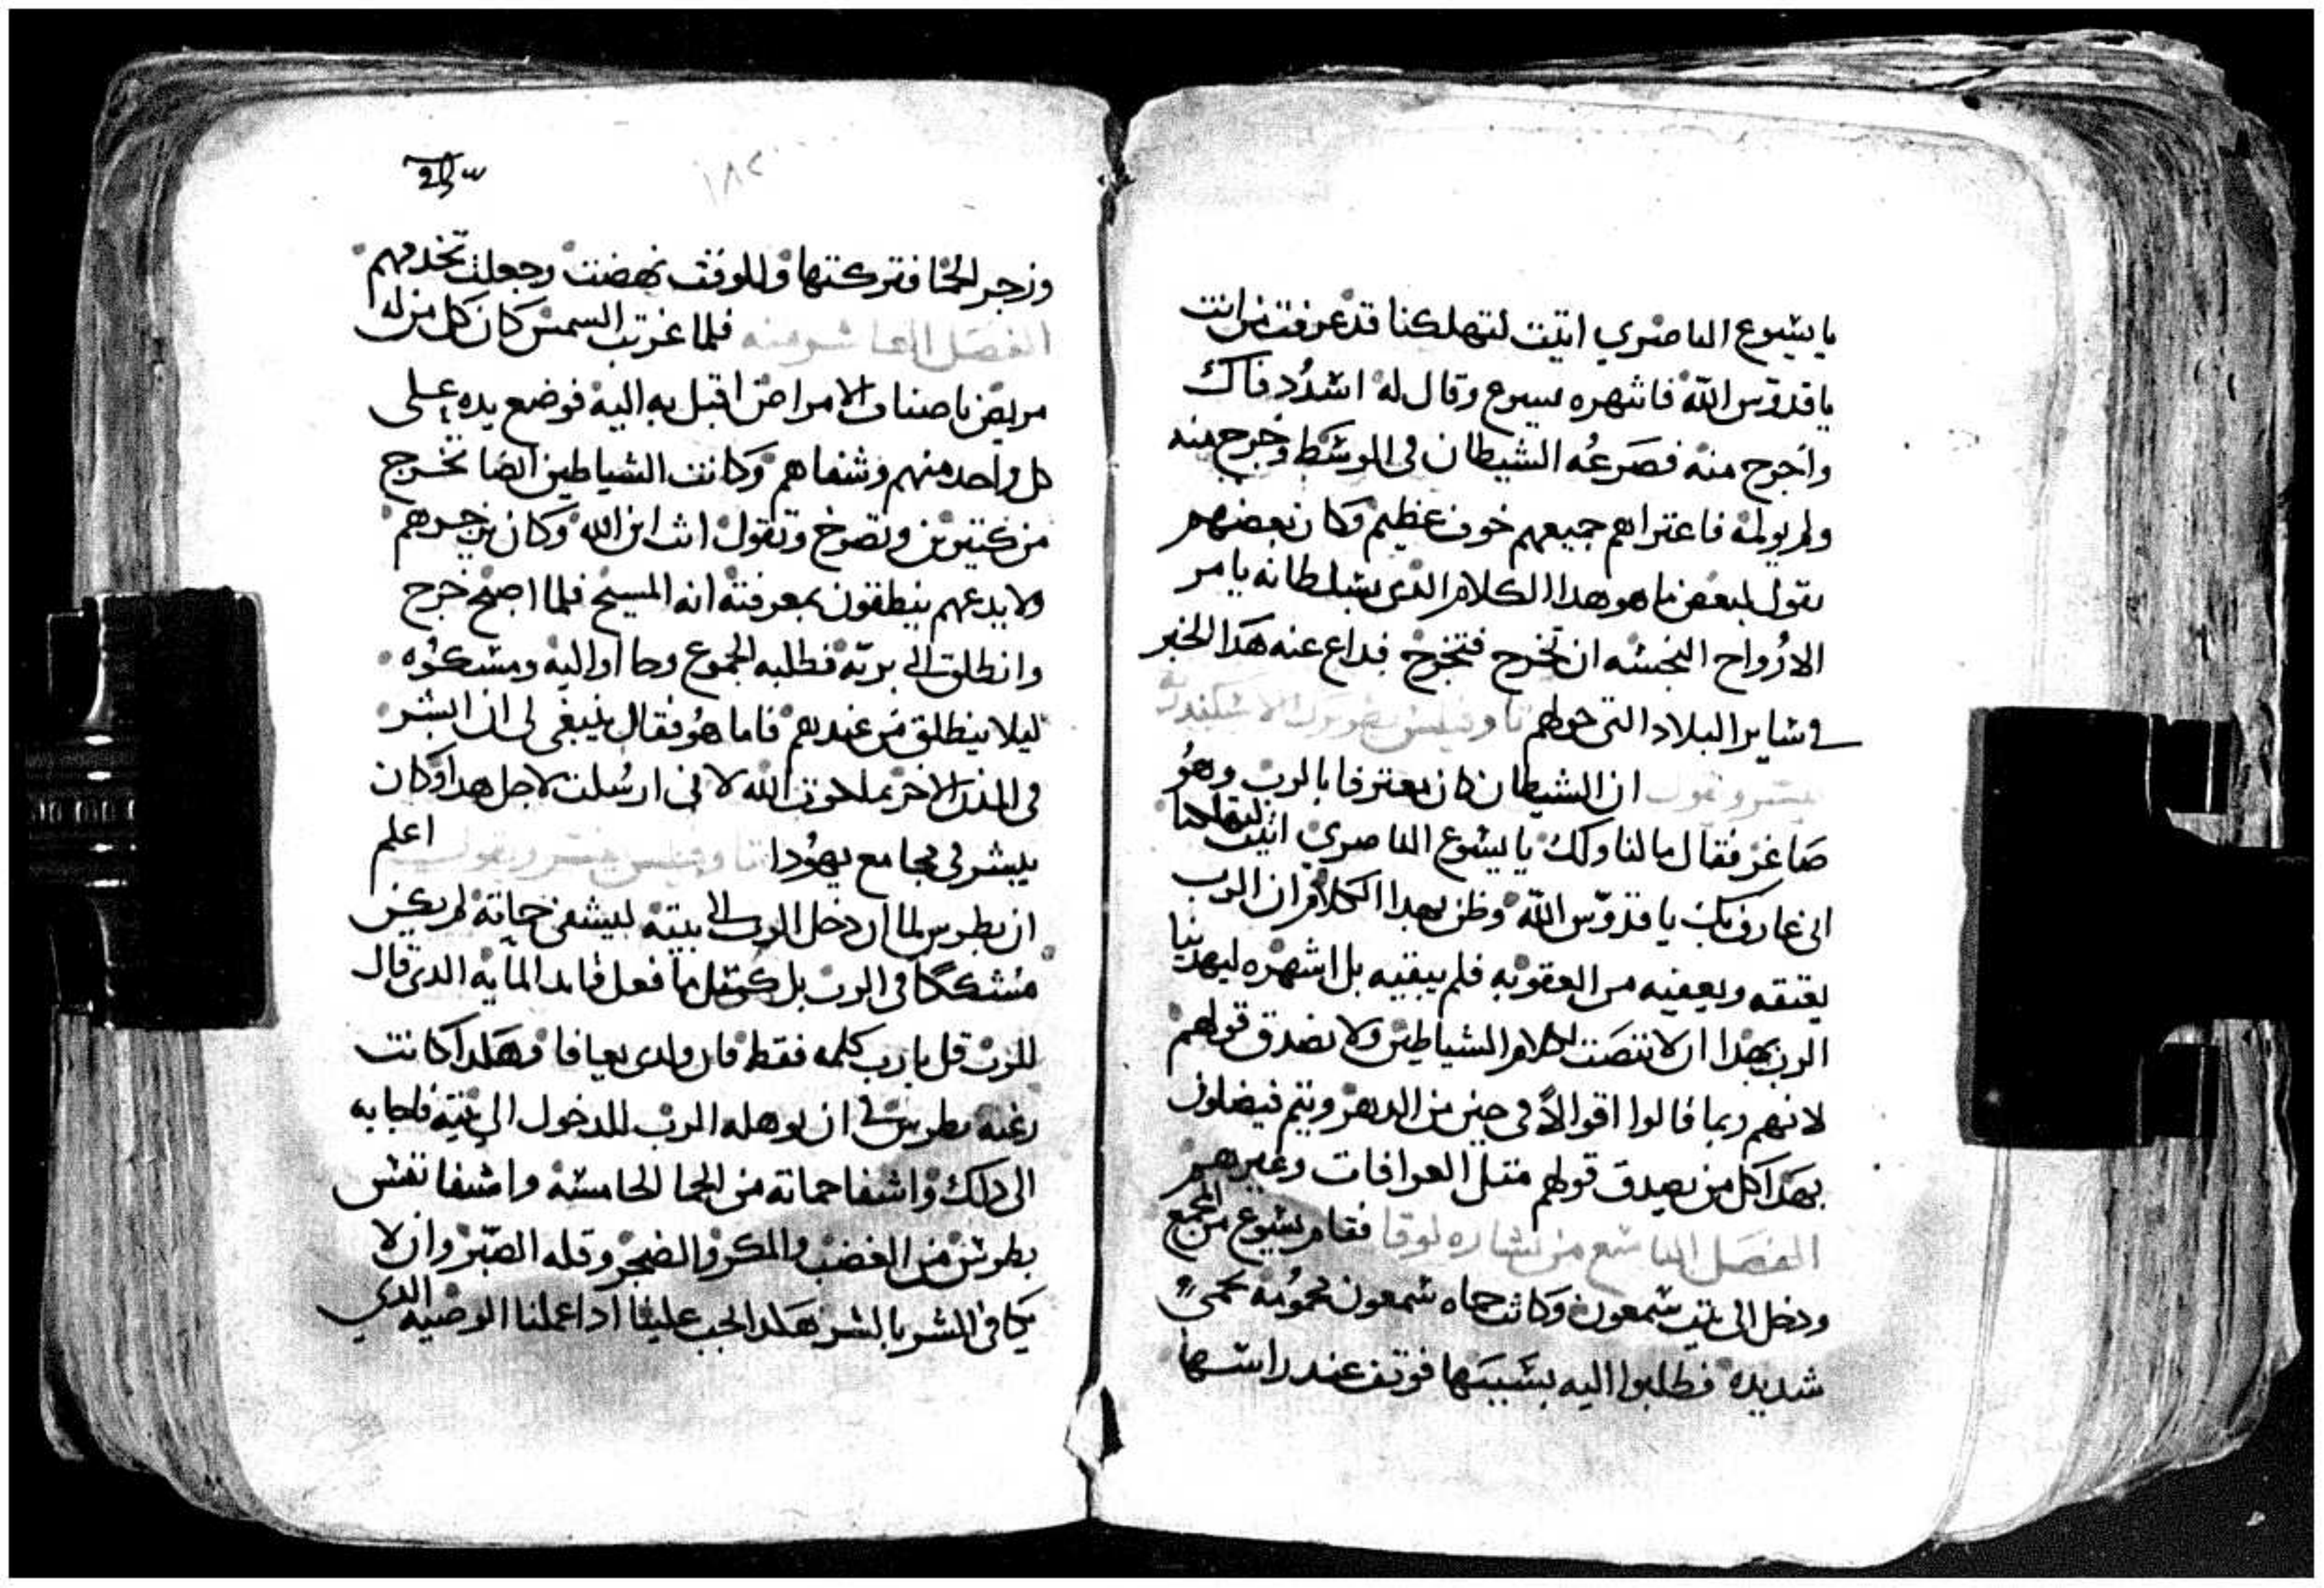 يا يسوع الناصري اتيت لتهلكنا قد عرفت من انت
يا قدوس الله فانتهره يسوع وقال له اشدُد فاك
واخرج منه فصَرعُه الشيطان في الوسَط وخرج منه
ولم يولمه فاعتراهم جميعهم خوف عظيم وكان بعضهم
يقول لبعض ما هو هدا الكلام الدى بسلطانه يامر
الارواح النجسه ان تخرج فتخرج فداع عنه هَدا الخبر
في ساير البلاد التى حولهم تاوفيلس بطريرك الاسكندريه
يفسر ويقول ان الشيطان كان معترفا بالرب وهُو
صَاغر فقال ما لنا ولك يا يسُوع الناصري اتيت لتهلكنا
انى عارف بك يا قدوّس الله وظن بهدا الكلام ان الرب
يعتقه ويعفيه من العقوبه فلم يبقيه بل اشهره ليهدينا
الرب بهدا ان لا ننصَت لكلام الشياطين ولا نصدق قولهم
لانهم ربما قالوا اقوالاً في حين من الدهر ويتم فيضلون
بهَدا كل من يصدق قولهم متل العرافات وغيرهم
الفصَل التاسع من بشاره لوقا فقام يسُوع من المجمع
ودخل الى بيت سمعون وكانت حماه سمعون محمُومَه بحمىً
شديده فطلبوا اليه بسَببهَا فوقف عند راسها
١٨٢
وزجر الحما فتركتها وللوقت نهضت وجعلت تخدمهم
الفصَل العاشر منه فلما غربت السمس كان كل من له
مريض باصناف الامراض اقبل به اليه فوضع يده على
كل واحد منهم وشفاهم وكانت الشياطين ايضا تخرج
من كتيرين وتصرخ وتقول انت ابن الله وكان يزجرهم
ولا يدعهم ينطقون بمعرفته انه المسيح فلما اصبح خرج
وانطلق الى بريه فطلبه الجموع وجا اوا اليه ومسكوُه
ليلا ينطلق من عندهم فاما هُو فقال ينبغى لى ان ابشر
في المدن الاخر بملكوت الله لانى ارسُلت لاجل هدا وكان
يبشر في مجامع يهُودا تاوفيلس يفسر ويقول اعلم
ان بطرس لما ان دخل الرب الى بيته ليشفى حماته لم يكن
مُتشككاً في الرب بل كمتل ما فعل قايد المايه الدى قال
للرب قل يا رب كلمه فقط فان ولدى يعافا وهَكدا كانت
رغبه بطرس في ان يوهله الرب للدخول الى بيته فاجابه
الى دلك واشفا حماته من الحما الحامسه واشفا نفس
بطرس من الغضب والمكر والضجر وقله الصَبر وان لا
يكافى الشر بالشر هَكدا الجب علينا ادا عملنا الوصيه الدي